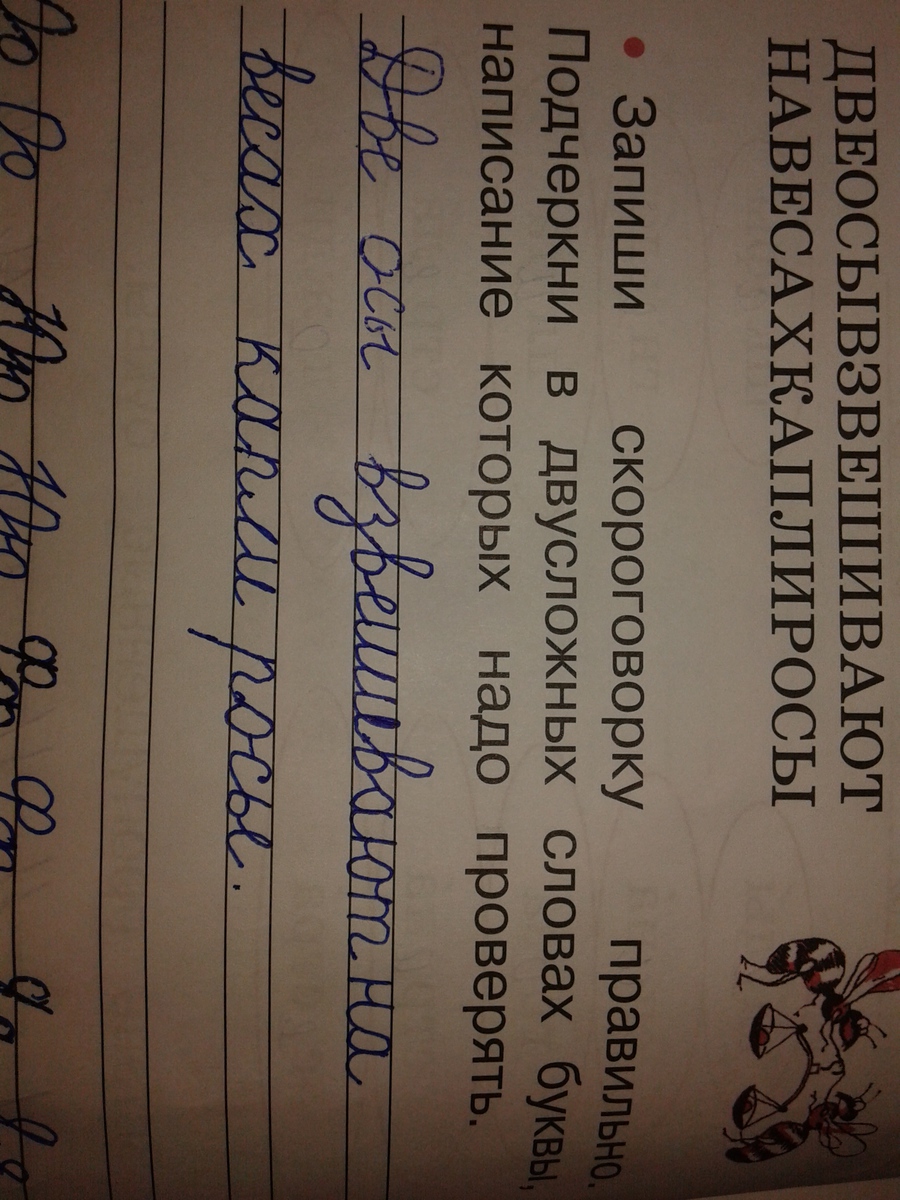 ДВЕОСЫВЗВЕШИВАЮТ
НАВЕСАХКАПЛИРОСЫ
• Запиши скороговорку правильно.
Подчеркни в двусложных словах буквы,
написание которых надо проверять.
Две осы взвешивают на
весах капли росы.